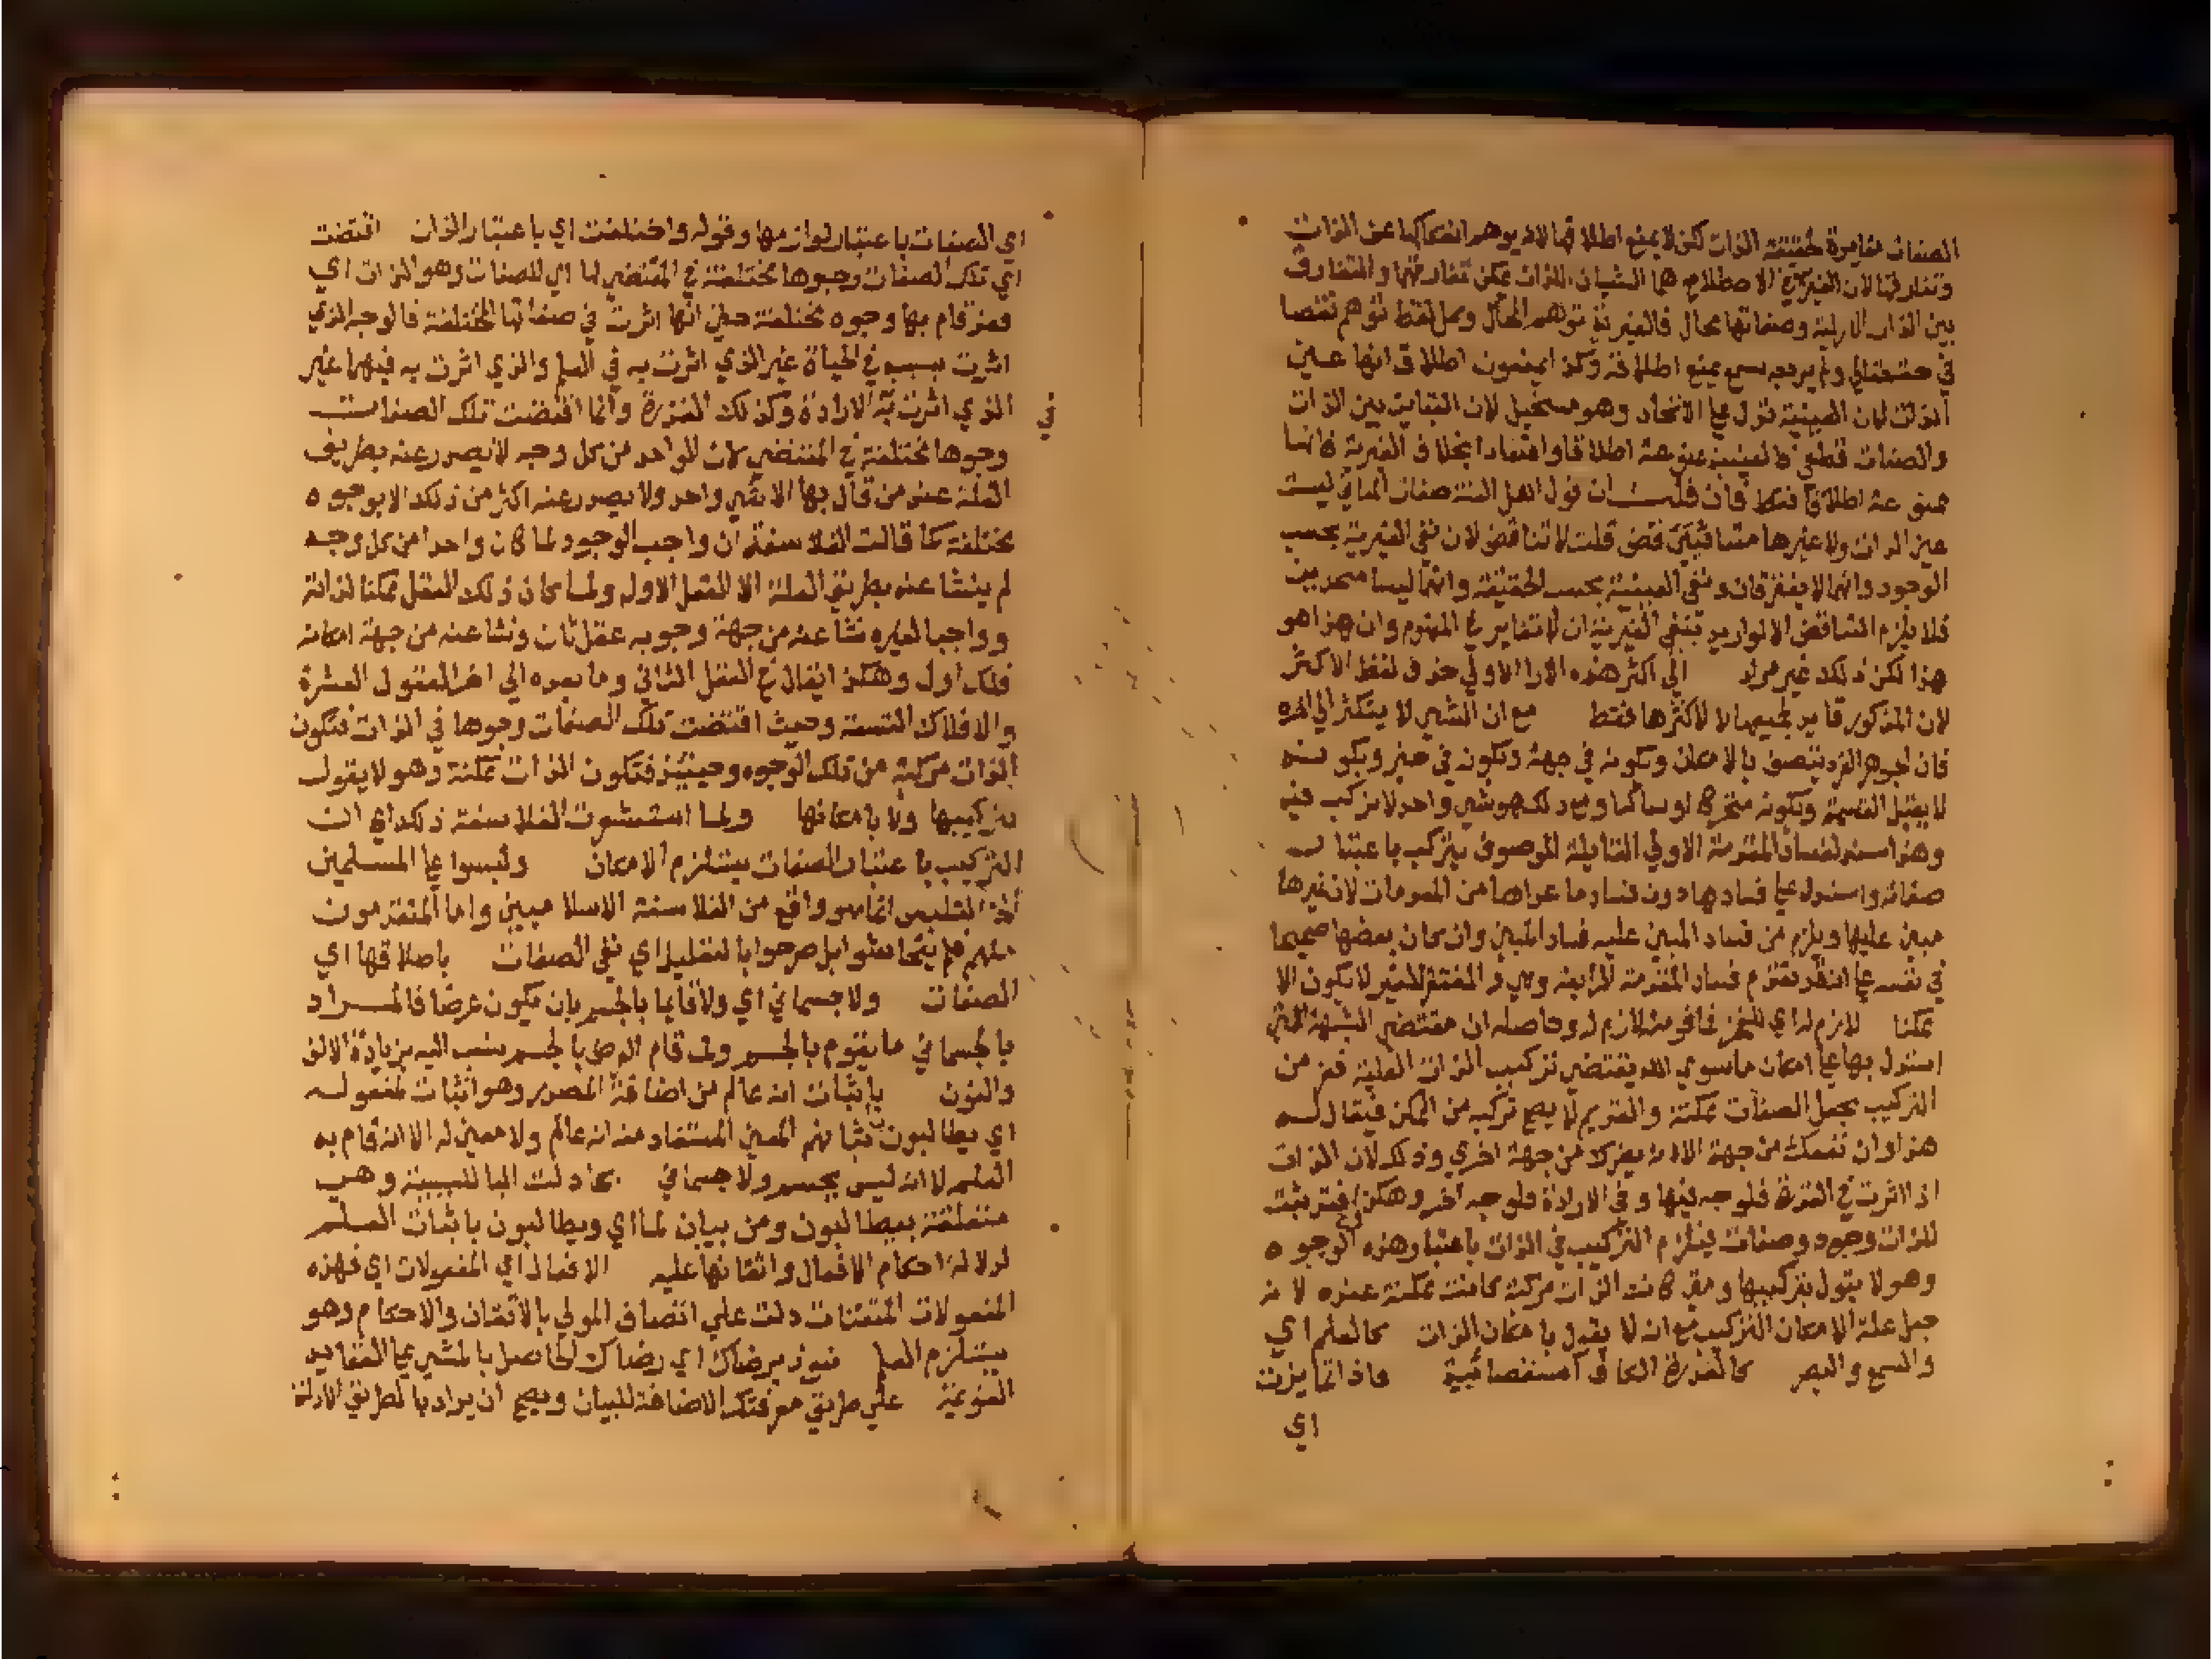 الصفات مغايرة لحقيقة الذات لكن لا يمنع اطلاقها لانه يوهم انفكاكها عن الذات
لان الغيرين في الاصطلاح هما الشيان اللذان يمكن تفارقهما والمتفارق
بين الذات الازلية وصفاتها محال فالغيرية توهم المحال وكل لفظ توهم نقصا
في حقه تعالى ولم يرد به سمع يمنع اطلاقه وكذا يمنعون اطلاق انها عين
الذات لان العينية تدل على الاتحاد وهو مستحيل لان التباين بين الذات
والصفات قطعي فالعينية ممنوعة اطلاقا واعتقادا بخلاف الغيرية فانها
ممنوعة اطلاقا فقط فان قلت ان قول اهل السنة صفات المعاني ليست
عين الذات ولا غيرها تناقض قلت لا تناقض لان نفي الغيرية بحسب
الوجود وانهما لا يفترقان ونفي العينية بحسب الحقيقة وانهما ليسا متحدين
فلا يلزم التناقض الا لو اريد بنفي الغيرية ان لا تغاير في المفهوم وان هذا هو
هذا لكن ذلك غير مراد الى اكثر هذه الارا الاولى حذف لفظ الاكثر
لان المذكور قايد لجميعها لا لاكثرها فقط مع ان الشي لا يتكثر الى اخره
فان الجوهر الفرد يتصف بالامكان وبكونه في جهة وبكونه في حيز وبكونه
لا يقبل القسمة وبكونه متحركا او ساكنا ومع ذلك هو شي واحد لا تركيب فيه
وهذا سند لفساد المقدمة الاولى القايلة الموصوف يتركب باعتبار
صفاته واستدل على فسادها دون فساد ما عداها من المقدمات لان غيرها
مبني عليها ويلزم من فساد المبني عليه فساد المبني وان كان بعضها صحيحا
في نفسه على انه قد تقدم فساد المقدمة الرابعة وهي ان المفتقر للغير لا يكون الا
ممكنا لازم له اي للفخر وحاصله ان مقتضي الشبهة التي
استدل بها على امكان ما سوى الله يقتضي تركيب الذات العلية ففر من
التركيب بجعل الصفات ممكنة والقديم لا يصح تركبه من الممكن فيقال له
هذا وان نفعك من جهة الا انه يضرك من جهة اخري وذلك لان الذات
اذا اثرت في القدرة فلوجه فيها وفي الارادة فلوجه اخر وهكذا فقد ثبت
للذات وجود وصفات فيلزم التركيب في الذات باعتبار هذه الوجوه
وهو لا يقول بتركيبها ومتى كانت الذات مركبة كانت ممكنة عنده لانه
جعل علة الامكان التركيب مع انه لا يقول بامكان الذات كالعلم اي
والسمع والبصر كالقدرة الكاف استقصائية واذا تمايزت
اي
اي الصفات باعتبار لوازمها وقوله واختلفت اي باعتبار الذات اقتضت
اي تلك الصفات وجوها مختلفة في المقتضي لها اي للصفات وهو الذات اي
فقد قام بها وجوه مختلفة حتى انها اثرت في صفاتها المختلفة فالوجه الذي
اثرت بسببه في الحياة غير الذي اثرت به في العلم والذي اثرت به فيهما غير
الذي اثرت به في الارادة وكذلك القدرة وانما اقتضت تلك الصفات
وجوها مختلفة في المقتضي لان الواحد من كل وجه لا يصدر عنه بطريق
العلة عند من قال بها الا شي واحد ولا يصدر عنه اكثر من ذلك الا بوجوه
مختلفة كما قالت الفلاسفة ان واجب الوجود لما كان واحدا من كل وجه
لم ينشا عنه بطريق العلة الا العقل الاول ولما كان ذلك العقل ممكنا لذاته
وواجبا لغيره نشا عنه من جهة وجوبه عقل ثان ونشا عنه من جهة امكانه
فلك اول وهكذا يقال في العقل الثاني وما بعده الى اخر العقول العشرة
والافلاك التسعة وحيث اقتضت تلك الصفات وجوها في الذات فتكون
الذات مركبة من تلك الوجوه وحينئذ فتكون الذات ممكنة وهو لا يقول
بتركيبها ولا بامكانها ولما استشعرت الفلاسفة ذلك اي ان
التركيب باعتبار الصفات يستلزم الامكان ولبسوا على المسلمين
التلبيس انما هو واقع من الفلاسفة الاسلاميين واما المتقدمون
منهم فلم يتحاشوا بل صرحوا بالتعليل اي نفي الصفات باصلاقها اي
الصفات ولا جسماني اي ولا قايما بالجسم بان يكون عرضا فالمراد
بالجسماني ما يقوم بالجسم ولما قام العرض بالجسم نسب اليه بزيادة الالف
والنون باثبات انه عالم من اضافة المصدر وهو اثبات لمفعوله
اي يطالبون باثباتهم المعنى المستفاد منه انه عالم ولا معنى له الا انه قام به
العلم لا انه ليس بجسم ولا جسماني بما دلت البا للسببية وهي
متعلقة بيطالبون ومن بيان لما اي ويطالبون باثبات العلم
لدلالة احكام الافعال واتقانها عليه الافعال اي المفعولات اي فهذه
المفعولات المتقنات دلت على اتصاف المولى بالاتقان والاحكام وهو
يستلزم العلم فعوذ برضاك اي رضاك الحاصل بالمشي على العقايد
القويمة على طريق معرفتك الاضافة للبيان ويصح ان يراد بالطريق الادلة